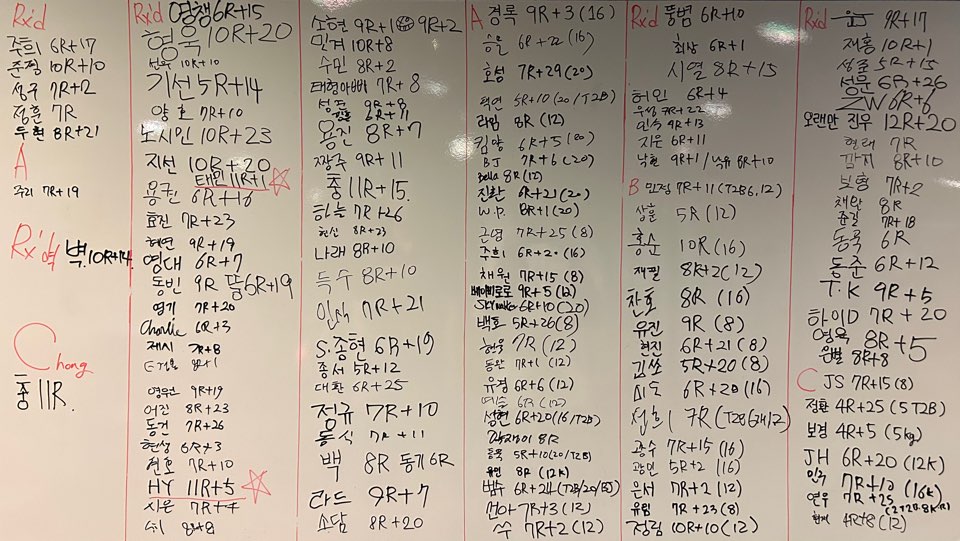 Rx'd
주희 6R+17
준정 10R+10
성구 7R+12
정훈 7R
두현 8R+21
A
주리 7R+19
Rx'd 역 벽 10R+14
Chong
총 11R.
Rx'd 영행 6R+15
형욱 10R+20
선욱 10R+10
기선 5R+14
양호 7R+10
노시민 10R+23
지선 10R+20
태민 11R+1
용권 6R+16
효진 7R+23
혜연 9R+19
영대 6R+7
동빈 9R 뚬 6R+19
영기 7R+20
Charlie 6R+3
제시 7R+8
8R+1
영우 9R+19
어진 8R+23
동건 7R+26
현성 6R+3
전호 7R+10
HY 11R+5
시온 7R+4
8R+8
소현 9R+1 9R+2
민겨 10R+8
수민 8R+2
태형아빠 7R+8
성준 9R+8
6R+11
용진 8R+7
짱주 9R+11
총 11R+15.
하늘 7R+26
현신 8R+23
나래 8R+10
득수 8R+10
인식 7R+21
S.종현 6R+19
종서 5R+12
대환 6R+25
정규 7R+10
동식 7R+11
백 8R 동기 6R
라드 9R+7
소담 8R+20
A 경록 9R+3 (16)
승윤 6R+22 (16)
호성 7R+29 (20)
5R+10 (20/T2B)
라임 8R (12)
김양 6R+5 (20)
BJ 7R+6 (20)
Bella 8R (12)
진환 6R+21 (20)
W.P. 8R+1 (20)
근영 7R+25 (8)
주희 6R+20 (16)
채원 7R+15 (8)
베이비로로 9R+5 (12)
Skywalker 6R+10 (20)
백호 5R+26 (8)
현욱 7R (12)
동완 7R+1 (12)
유경 6R+6 (12)
6R (12)
성현 6R+20 (16/T2B)
8R
동욱 5R+10 (20/T2B)
용민 8R (12K)
범수 6R+24 (T2B/20/BJ)
선아 7R+3 (12)
쑤 7R+2 (12)
Rx'd 뚱범 6R+10
최상 6R+1
시열 8R+15
허인 6R+4
우성 7R+22
인수 9R+13
지은 6R+11
낙현 9R+1 / 8R+10
B 민정 7R+11 (T2B6, 12)
상윤 5R (12)
홍순 10R (16)
재필 8R+2 (12)
찬호 8R (16)
유진 9R (8)
현진 6R+21 (8)
김쏘 5R+20 (8)
시도 6R+20 (16)
7R (T2B 6개 12)
광수 7R+15 (16)
광민 5R+2 (16)
은서 7R+2 (12)
유림 7R+23 (8)
정림 10R+10 (12)
Rx'd 9R+17
재홍 10R+1
성준 5R+15
성문 6R+26
ZW 6R+6
오랜만 진우 12R+20
현래 7R
감지 8R+10
보형 7R+2
채완 8R
쥰길 7R+18
동욱 6R
동준 6R+12
T.K 9R+5
하이D 7R+20
영욱 8R+5
은별 8R+8
C JS 7R+15 (8)
정환 4R+25 (5 T2B)
보경 4R+5 (5kg)
JH 6R+20 (12K)
민수 7R+12 (16k)
연우 7R+25 (2T2B 8K R)
현지 4R+8 (12)